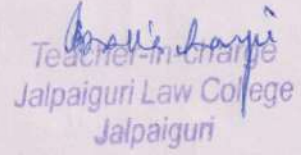 Teacher-in-charge
Jalpaiguri Law College
Jalpaiguri